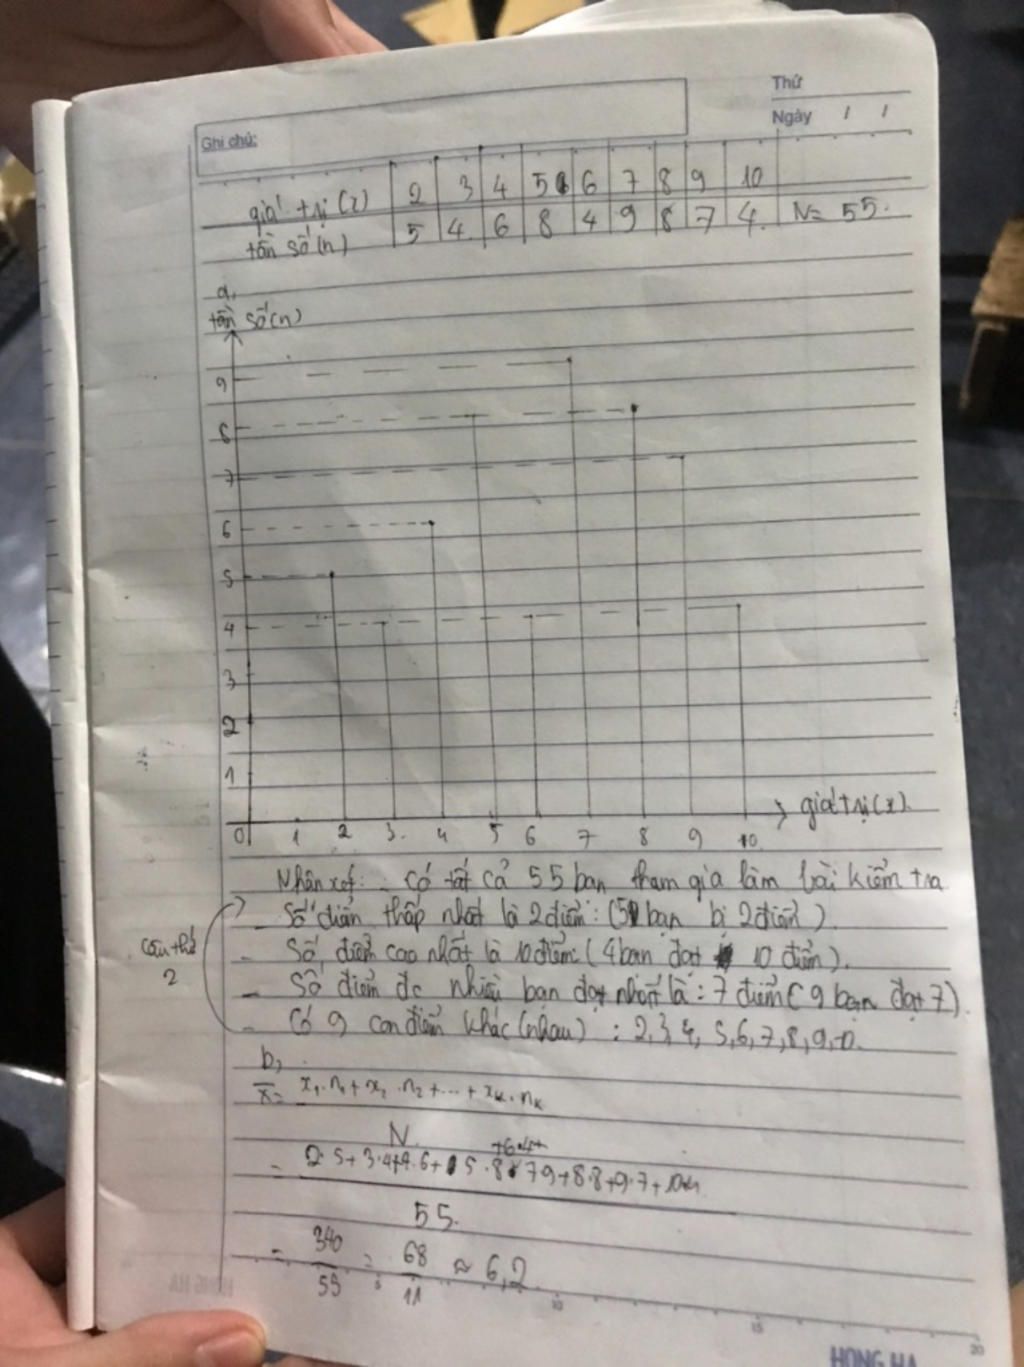 Thứ
Ngày / /
Ghi chú:
giá trị (x) 2 3 4 5 6 7 8 9 10
tần số (n) 5 4 6 8 4 9 8 7 4 N = 55.
a,
tần số (n)
9
8
7
6
5
4
3
2
1
0 1 2 3 4 5 6 7 8 9 10 giá trị (x)
Nhận xét: - Có tất cả 55 bạn tham gia làm bài kiểm tra
- Số điểm thấp nhất là 2 điểm: (5 bạn bị 2 điểm).
- Số điểm cao nhất là 10 điểm: (4 bạn đạt 10 điểm).
câu thứ 2
- Số điểm đc nhiều bạn đạt nhất là: 7 điểm (9 bạn đạt 7).
- Có 9 con điểm khác (nhau): 2,3,4,5,6,7,8,9,10.
b,
x̄ = x₁.n₁ + x₂.n₂ + ... + xₖ.nₖ
N
+6.4+
= 2.5+3.4+4.6+5.8 7.9+8.8+9.7+10.4
55.
= 340/55 = 68/11 ≈ 6,2
5 10 15 20
HONG HA